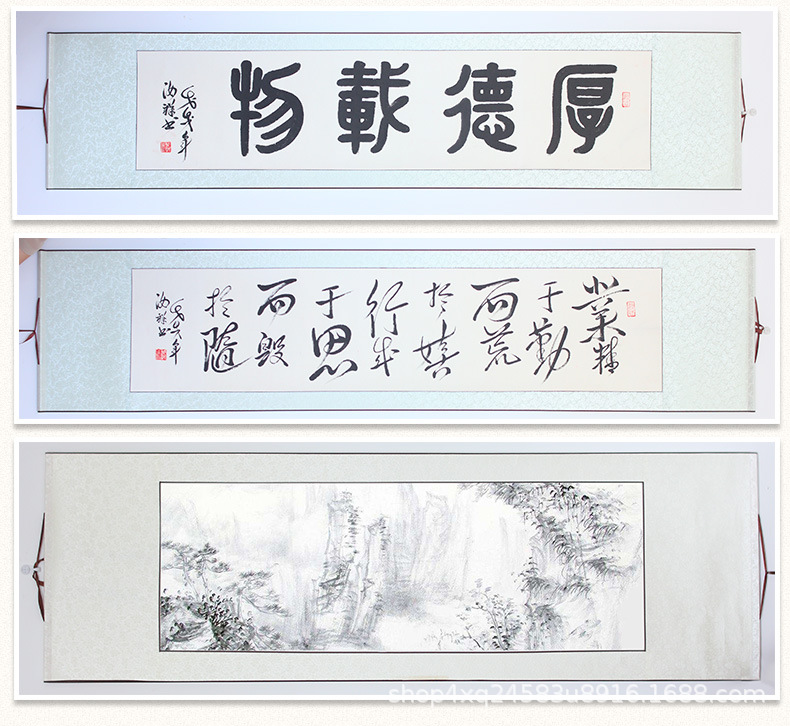 厚德載物
戊戌年
業精
于勤
而荒
於嬉
行成
于思
而毀
於隨
戊戌年
shop4xq24583u8916.1688.com